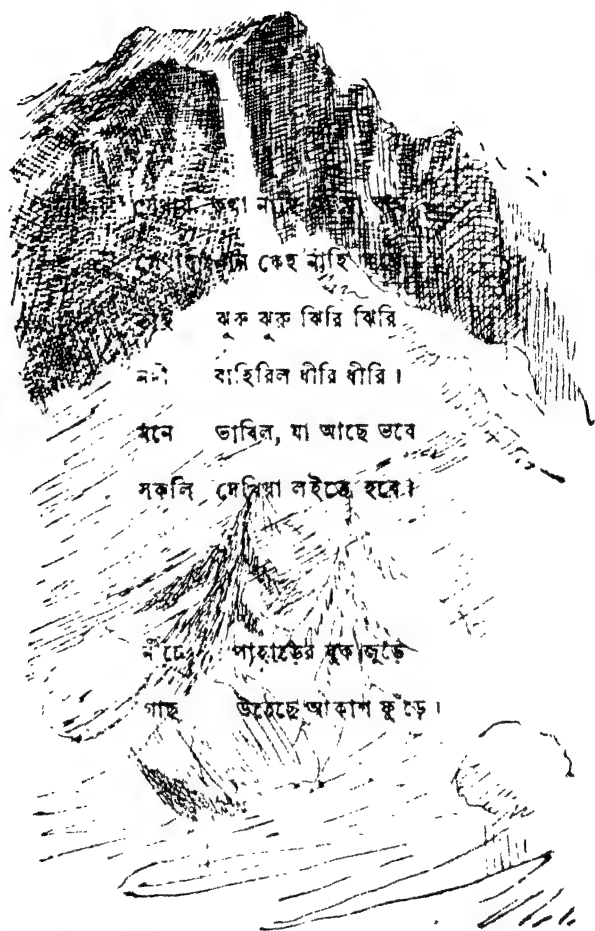 কেহ নাহি
ঝুরু ঝুরু ঝিরি ঝিরি
নদী বাহিরিল ধীরি ধীরি।
মনে ভাবিল, যা আছে ভবে
সকলি দেখিয়া লইতে হবে।
নীচে পাহাড়ের বুক জুড়ে
গাছ উঠেছে আকাশ ফুঁড়ে।